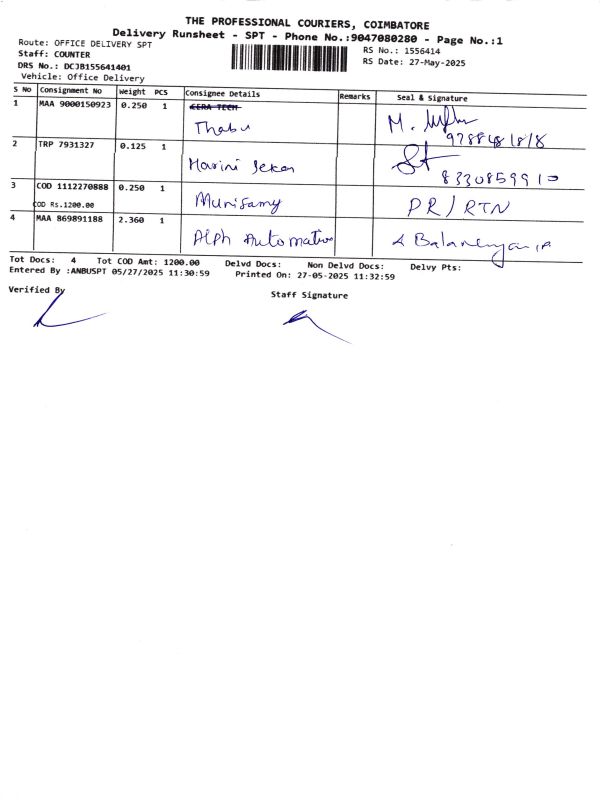 THE PROFESSIONAL COURIERS, COIMBATORE
Delivery Runsheet - SPT - Phone No.:9047080280 - Page No.:1
Route: OFFICE DELIVERY SPT
RS No.: 1556414
Staff: COUNTER
RS Date: 27-May-2025
DRS No.: DCJB155641401
Vehicle: Office Delivery
S No Consignment No Weight PCS Consignee Details Remarks Seal & Signature
1 MAA 9000150923 0.250 1 CERA TECH
Thabu M.
9788481818
2 TRP 7931327 0.125 1
Harini Sekar 8330859910
3 COD 1112270888 0.250 1
COD Rs.1200.00 Munisamy PR/RTN
4 MAA 869891188 2.360 1
Alph Automation
Tot Docs: 4 Tot COD Amt: 1200.00 Delvd Docs: Non Delvd Docs: Delvy Pts:
Entered By :ANBUSPT 05/27/2025 11:30:59 Printed On: 27-05-2025 11:32:59
Verified By Staff Signature